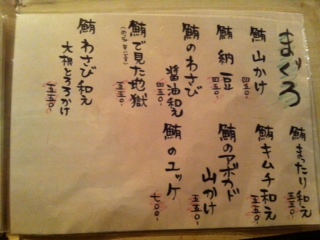 まぐろ
鮪 山かけ
四五〇.
鮪 納豆
四五〇.
鮪のわさび
醤油和え
四五〇.
鮪で見た地獄
五五〇.
鮪 わさび和え
大根とろろかけ
五五〇.
鮪 まったり和え
五五〇.
鮪 キムチ和え
五五〇.
鮪のアボカド
山かけ
五五〇.
鮪のユッケ
七〇〇.